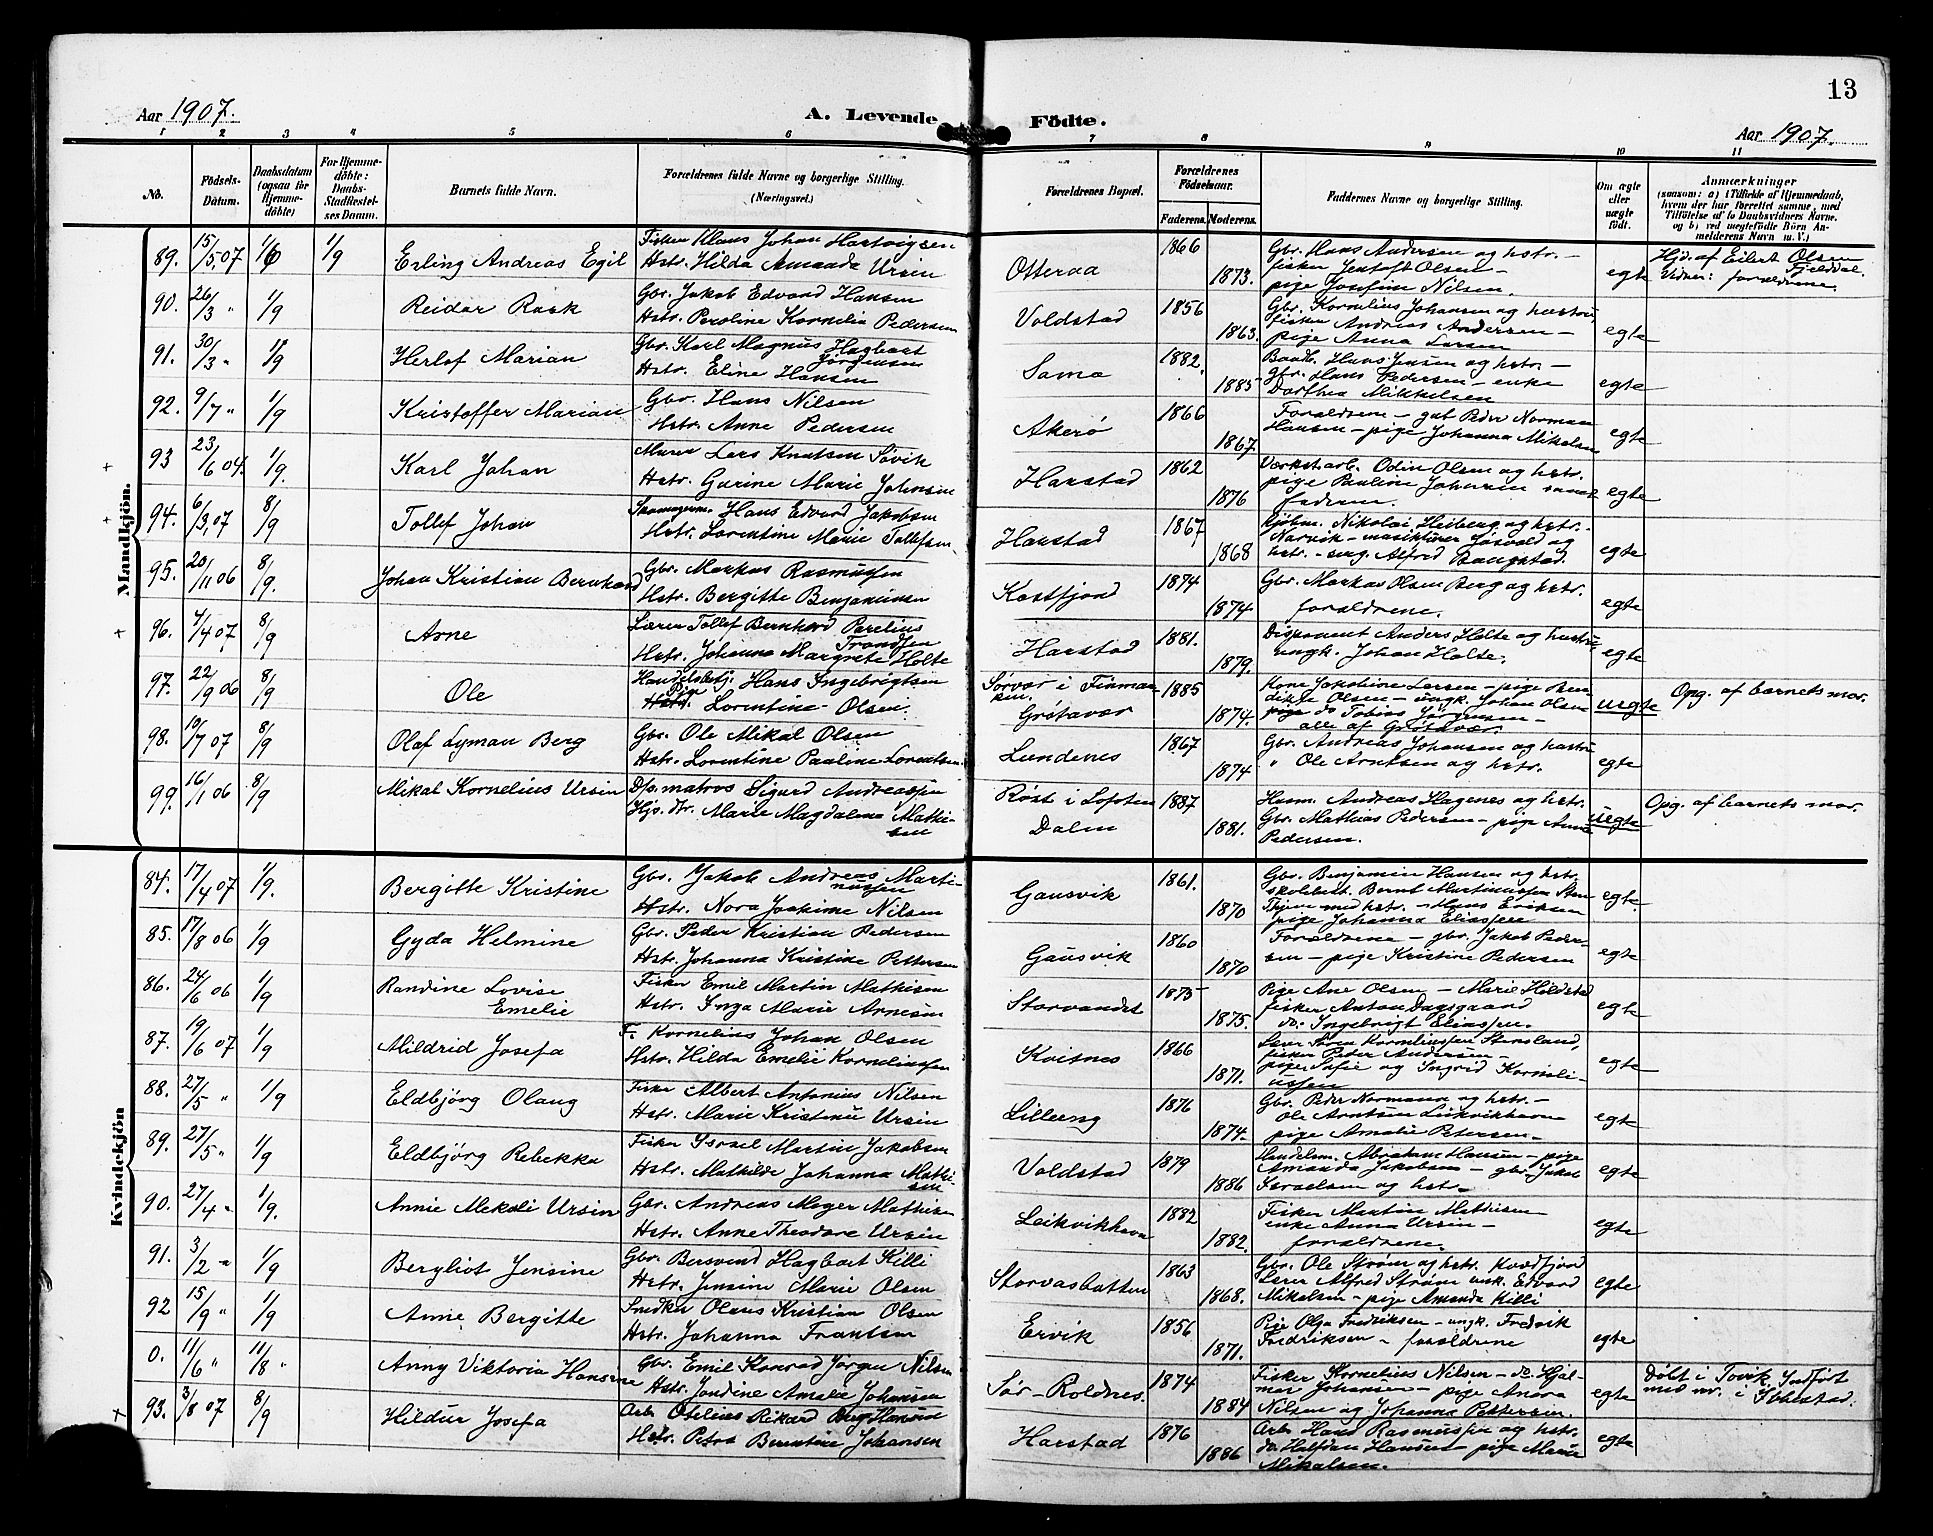 13
Aar 1907.
A. Levende
Födte.
Aar 1907.
1 2 3 4 5 6 7 8 9 10 11
No.
Födsels-
Datum.
Daabsdatum
(ogsaa for
Hjemme-
döbte)
For Hjemme-
döbte:
Daabs-
Stadfæstel-
ses Daum.
Barnets fulde Navn.
Forældrenes fulde Navne og borgerlige Stilling.
(Næringsvei.)
Forældrenes Bopæl.
Forældrenes
Födselsaar.
Faderens.
Moderens.
Faddernes Navne og borgerlige Stilling.
Om ægte
eller
uægte
födt.
Anmærkninger
(saasom: a) i Tilfælde af Hjemmedaab,
hvem der har forrettet samme, med
Tilföielse af to Daabsvidners Navne,
og b) ved uægtefödte Börn An-
melderens Navn m. V.)
Mandkjön.
89. 15/5 07 1/6 1/9 Erling Andreas Egil
Fisker Klaus Johan Hartvigsen
Hstr. Hilda Amanda Ursin
Otteraa 1866 1873.
Gbr. Hans Andersen og hstr. –
fisker Jentoft Olsen –
pige Josefine Nilsen.
egte
Hjd. af Eilert Olsen
Fjelddal.
Vidner: forældrene.
90. 26/3 " 1/9 Reidar Rask
Gbr. Jakob Edvard Hansen
Hstr. Peroline Kornelia Pedersen
Voldstad 1856 1863.
Gbr. Kornelius Johansen og hustru,
fisker Andreas Andersen –
pige Anna Larsen
egte
91. 30/3 " 1/9 Herlof Marian
Gbr. Karl Magnus Hagbart
Jørgensen
Hstr. Eline Hansen
Sama 1882. 1885
Baadb. Hans Jensen og hstr. –
gbr. Hans Pedersen – enke
Dorthea Mikkelsen
egte
92. 9/7 " 1/9 Kristoffer Marian
Gbr. Hans Nilsen
Hstr. Anne Pedersen
Akerø 1866 1867.
Forældrene – gut Peder Norman
Hansen – pige Johanna Mikalsen
egte
93 23/6 04. 1/9 Karl Johan
Murer Lars Knutsen Søvik
Hstr. Gurine Marie Johnsen
Harstad 1862 1876
Værkst.arb. Odin Olsen og hstr.
pige Pauline Johansen samt
faderen.
egte
94. 6/3 07 8/9 Tollef Johan
Hans Edvard Jakobsen
Hstr. Lorentine Marie Tollefsen
Harstad 1867 1868
Kjøbm. Nikolai Heiberg og hstr.
Narvik – og
hstr. – serg. Alfred
egte
95. 20/11 06 8/9. Johan Kristian Bernhard
Gbr. Markus Rasmussen
Hstr. Bergitte Benjaminsen
Kasfjord 1874 1874
Gbr. Markus Olsen Berg og hstr.
forældrene.
egte
96. 7/4 07 8/9 Arne
Lærer Tollef Bernhard Parelius
Trondsen
Hstr. Johanna Margrete Holte
Harstad 1881. 1879.
Disponent Anders Holte og hustru,
ungk. Johan Holte.
egte
97. 22/9 06 8/9 Ole
Handelsbetj. Hans Ingebrigtsen
Pige
Hstr. Lorentine Olsen.
Sørvær i Finmar-
ken.
Grøtavær 1885 1874.
Kone Jakobine Larsen – pige Ben-
dikte Olsen – ungk. Johan Olsen
pige do Tobias Jørgensen –
alle af Grøtavær.
uegte
Opg. af barnets mor.
98. 10/7 07 8/9 Olaf Lyman Berg
Gbr. Ole Mikal Olsen
Hstr. Lorentine Pauline Lorentsen
Lundenes 1867 1874
Gbr. Andreas Johansen og hustru
" Ole Arntsen og hstr.
egte
99. 16/1 06 8/9 Mikal Kornelius Ursin
Dp.matros Sigurd Andreassen
Hjs. dtr. Marie Magdalena Mathi-
sen
Røst i Lofoten
Dalen 1887 1881.
Husm. Andreas Hagenes og hstr.
Gbr. Mathias Pedersen – pige Anna
Pedersen.
uegte
Opg. af barnets mor.
Kvindekjön
84. 17/4 07 1/9. Bergitte Kristine
Gbr. Jakob Andreas Marti-
nussen
Hstr. Nora Joakime Nilsen
Gausvik 1861. 1870
Gbr. Benjamin Hansen og hstr.
skolebest. Bernt Martinussen
med hstr. – Hans Eriksen
pige Johanna Eliassen
egte.
85. 17/8 06 1/9 Gyda Helmine
Gbr. Peder Kristian Pedersen
Hstr. Johanna Kristine Pettersen
Gausvik 1860 1870
Forældrene – gbr. Jakob Peder-
sen – pige Kristine Pedersen
egte
86. 24/6 06 1/9 Randine Lovise
Emelie
Fisker Emil Martin Mathisen
Hstr. Inga Marie Arnesen
Storvandet 1875 1875.
Pige Ane Olsen – Marie Holdstad
fisker Anton Dagsgaard
do. Ingebrigt Eliassen.
egte
87. 19/6 07 1/9 Mildrid Josefa
F. Kornelius Johan Olsen
Hstr. Hilda Emelie Korneliussen
Kvitnes 1866 1871.
Lærer Søren Korneliussen Stensland,
fisker Peder Andersen –
pige Sofie og Ingrid Korneli-
ussen
egte
88. 27/5 " 1/9 Eldbjörg Olaug
Fisker Albert Antonius Nilsen
Hstr. Marie Kristine Ursin
Lilleeng 1876 1874.
Gbr. Peder Normann og hstr. –
Ole Arntsen Leikvikhavn
pige Amalie Petersen –
egte
89. 27/5 " 1/9 Eldbjörg Rebekka
Fisker Israel Martin Jakobsen
Hstr. Mathilde Johanna Mathi-
sen
Voldstad 1879 1886
Handelsm. Abraham Hansen – pige
Amanda Jakobsen – gbr. Jakob
Israelsen og hstr.
egte
90. 27/4 " 1/9. Annie Mekali Ursin
Gbr. Andreas Meyer Mathisen
Hstr. Anne Theodora Ursin
Leikvikhavn 1882 1882.
Fisker Martin Mathisen
enke Anna Ursin –
forældrene.
egte
91. 3/2 " 1/9 Bergliot Jensine
Gbr. Bersvend Hagbart Killi
Hstr. Jensine Marie Olsen
Storvasbotten 1863 1868.
Gbr. Ole Strøm og hstr. Kvæfjord
Lærer Alfred Strøm ungk. Edvard
Mikalsen – pige Amanda Killi
egte
92 15/9 " 1/9 Anne Bergitte
Snedker Olaus Kristian Olsen
Hstr. Johanna Frantsen
Ervik 1856 1871.
Pige Olga Fredriksen – ungk. Fredrik
Fredriksen – forældrene
egte
0. 11/6 " 11/8 " Anny Viktoria Hansine
Gbr. Emil Konrad Jørgen Nilsen
Hstr. Jondine Amalie Johansen
Sør-Roldnes. 1874 1884
Fisker Kornelius Nilsen – do. Hjal-
mar Johansen – pige Anara
Nilsen og Johanna Pettersen.
egte
Døbt i Tovik. Indført
med nr. i Ibestad.
93. 3/8 07 8/9 Hildur Josefa
Arb. Otelius Rikard Berg Hansen
Hstr. Petra Berntine Johansen
Harstad 1876 1886
Arb. Hans Rasmussen og hstr.
do. Halfdan Hansen – pige Marie
Mikalsen.
egte